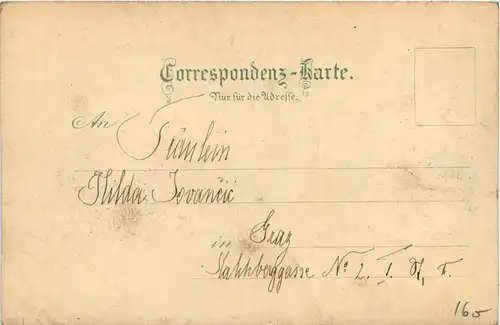 Correspondenz-Karte.
Nur für die Adresse.
An
Fräulein
Hilda Jovančić
in Graz
No 2. I. St,
160